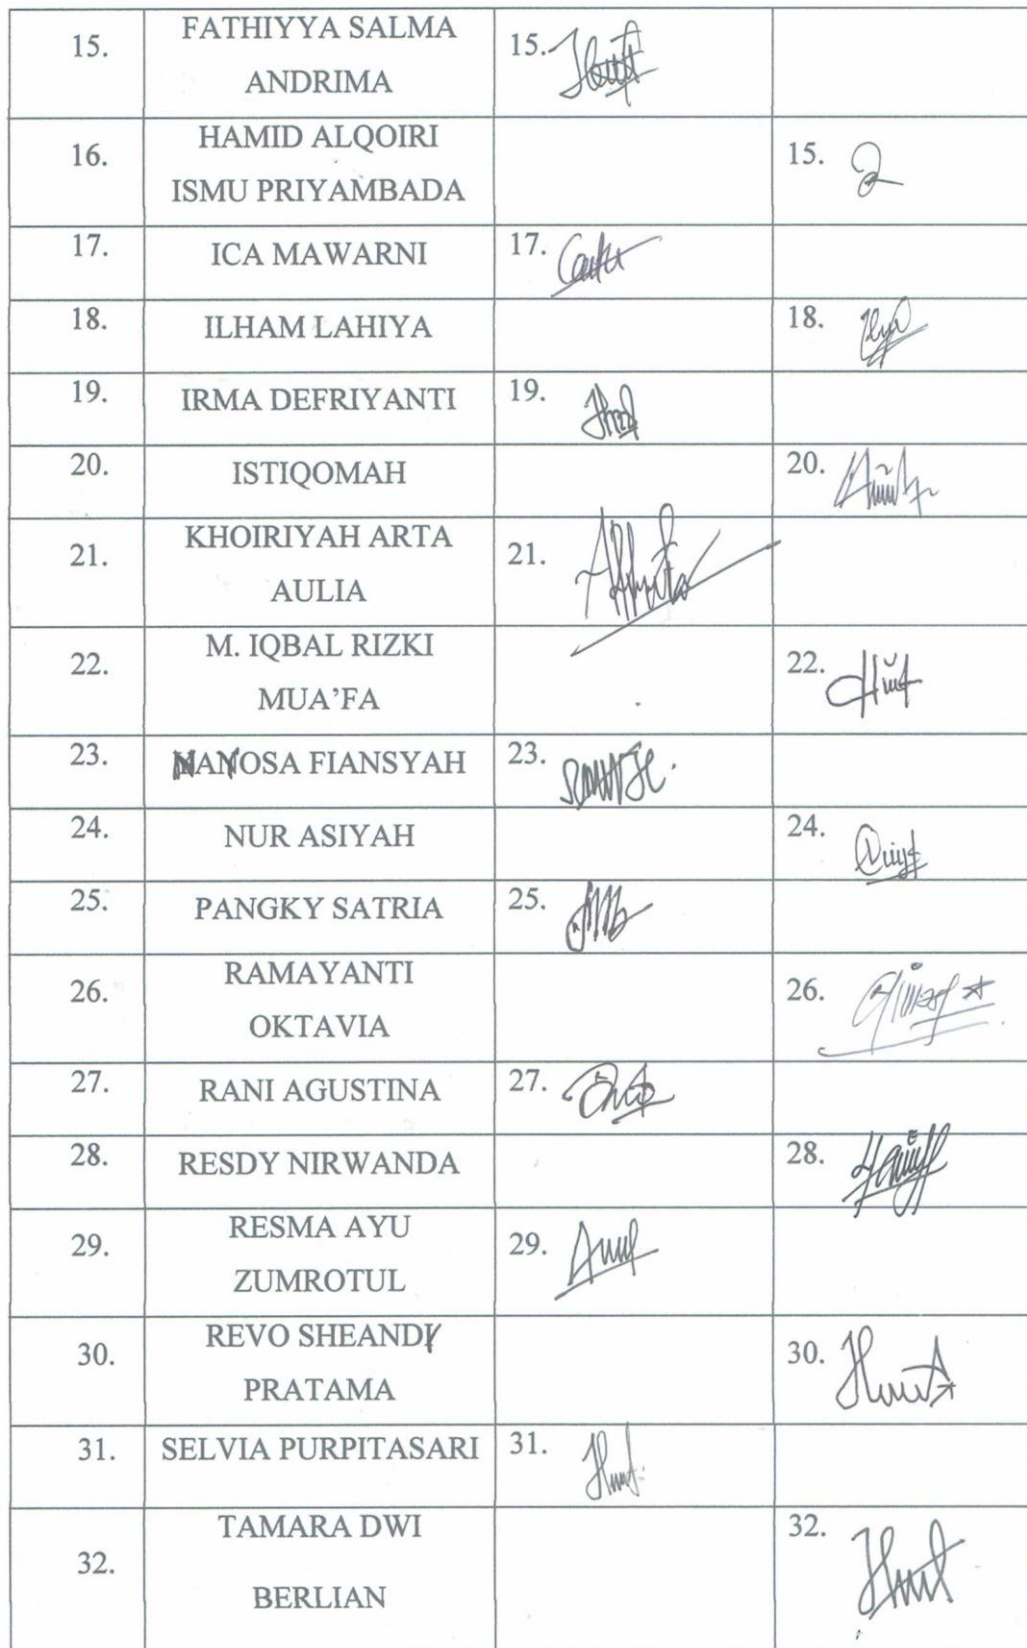 15.
FATHIYYA SALMA
ANDRIMA
15.
16.
HAMID ALQOIRI
ISMU PRIYAMBADA
15.
17.
ICA MAWARNI
17.
18.
ILHAM LAHIYA
18.
19.
IRMA DEFRIYANTI
19.
20.
ISTIQOMAH
20.
21.
KHOIRIYAH ARTA
AULIA
21.
22.
M. IQBAL RIZKI
MUA'FA
22.
23.
NANOSA FIANSYAH
23.
24.
NUR ASIYAH
24.
25.
PANGKY SATRIA
25.
26.
RAMAYANTI
OKTAVIA
26.
27.
RANI AGUSTINA
27.
28.
RESDY NIRWANDA
28.
29.
RESMA AYU
ZUMROTUL
29.
30.
REVO SHEANDY
PRATAMA
30.
31.
SELVIA PURPITASARI
31.
32.
TAMARA DWI
BERLIAN
32.